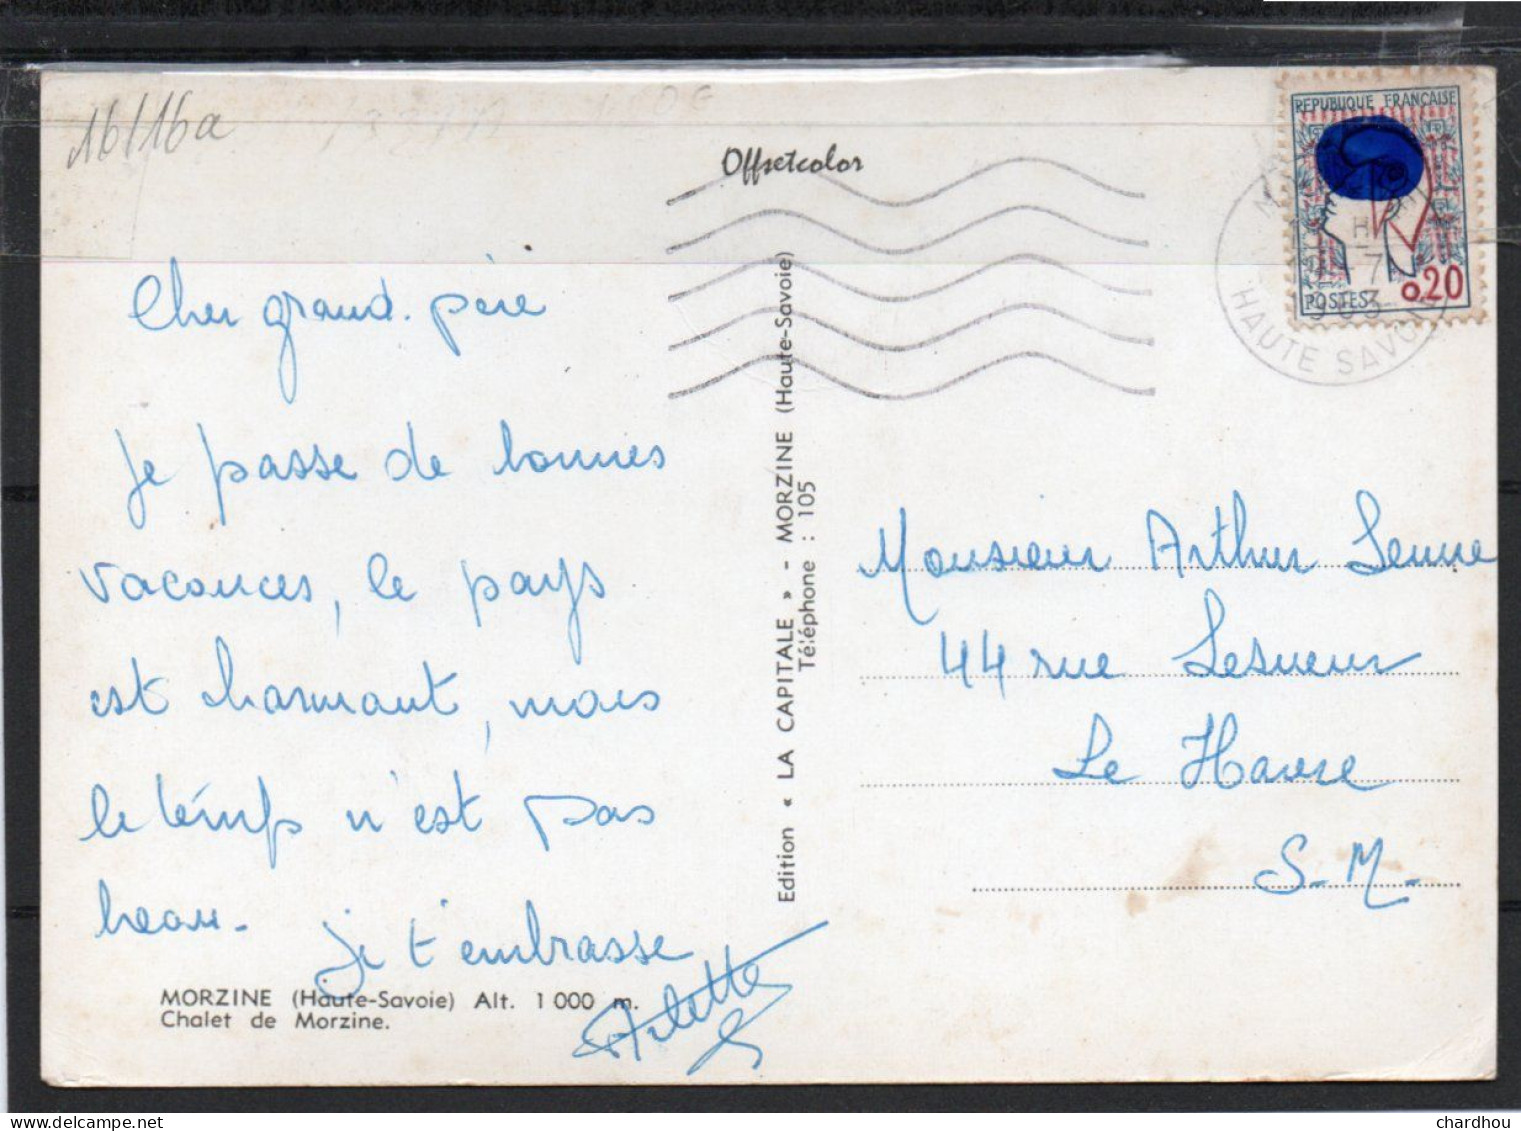 16/16a
Offsetcolor
REPUBLIQUE FRANÇAISE
POSTES 0.20
HAUTE SAVOIE
Cher grand-père
je passe de bonnes
vacances, le pays
est charmant, mais
le temps n'est pas
beau.
je t'embrasse
Arlette
MORZINE (Haute-Savoie) Alt. 1 000 m.
Chalet de Morzine.
Edition « LA CAPITALE » - MORZINE (Haute-Savoie)
Téléphone : 105
Monsieur Arthur
44 rue Lesueur
Le Havre
S.M.
chardhou